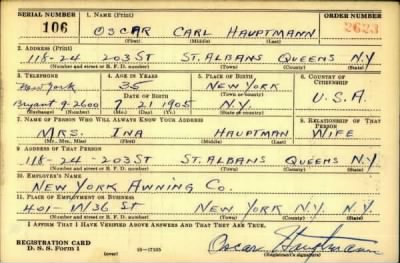 SERIAL NUMBER 1. NAME (Print) ORDER NUMBER
106 OSCAR CARL HAUPTMANN 2623
(First) (Middle) (Last)
2. ADDRESS (Print)
118-24 203 ST ST. ALBANS QUEENS N.Y.
(Number and street or R. F. D. number) (Town) (County) (State)
3. TELEPHONE 4. AGE IN YEARS 5. PLACE OF BIRTH 6. COUNTRY OF CITIZENSHIP
New York 35 NEW YORK
DATE OF BIRTH (Town or county)
Bryant 9-2600 7 21 1905 N.Y. U.S.A
(Exchange) (Number) (Mo.) (Day) (Yr.) (State or country)
7. NAME OF PERSON WHO WILL ALWAYS KNOW YOUR ADDRESS 8. RELATIONSHIP OF THAT PERSON
MRS. INA HAUPTMAN WIFE
(Mr., Mrs., Miss) (First) (Middle) (Last)
9. ADDRESS OF THAT PERSON
118-24-203 ST ST. ALBANS QUEENS N.Y.
(Number and street or R. F. D. number) (Town) (County) (State)
10. EMPLOYER'S NAME
NEW YORK AWNING CO.
11. PLACE OF EMPLOYMENT OR BUSINESS
401-W/36 ST NEW YORK N.Y. N.Y.
(Number and street or R. F. D. number) (Town) (County) (State)
I AFFIRM THAT I HAVE VERIFIED ABOVE ANSWERS AND THAT THEY ARE TRUE.
REGISTRATION CARD
D. S. S. Form 1 (over) 16-17105 Oscar Hauptmann
(Registrant's signature)